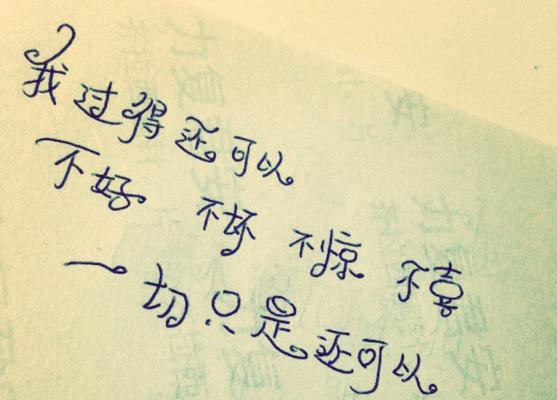 我过得还可以
不好 不坏 不惊 不喜
一切只是还可以